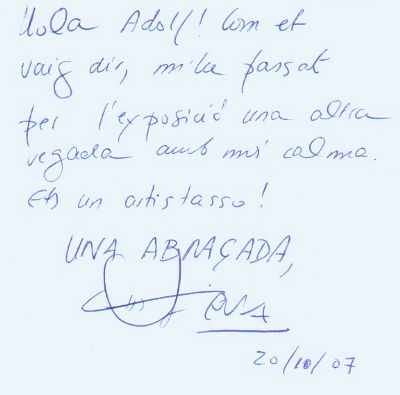 Hola Adolf! Com et
vaig dir, m'he passat
per l'exposició una altra
vegada amb més calma.
Ets un artistasso!
UNA ABRAÇADA,
20/10/07